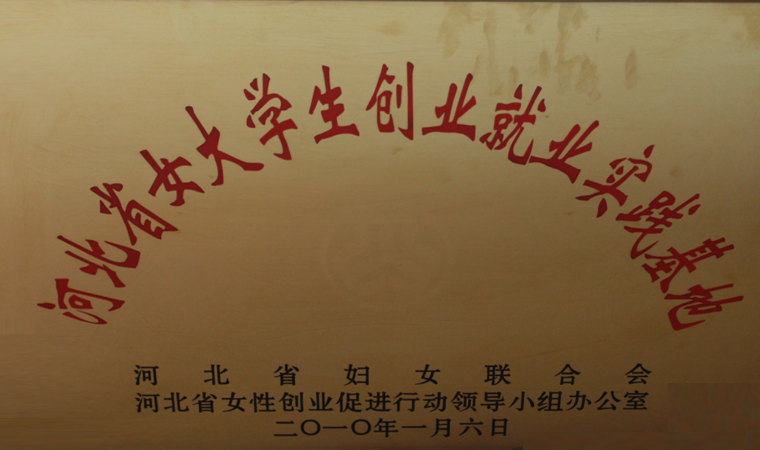 河北省女大学生创业就业实践基地
河北省妇女联合会
河北省女性创业促进行动领导小组办公室
二〇一〇年一月六日